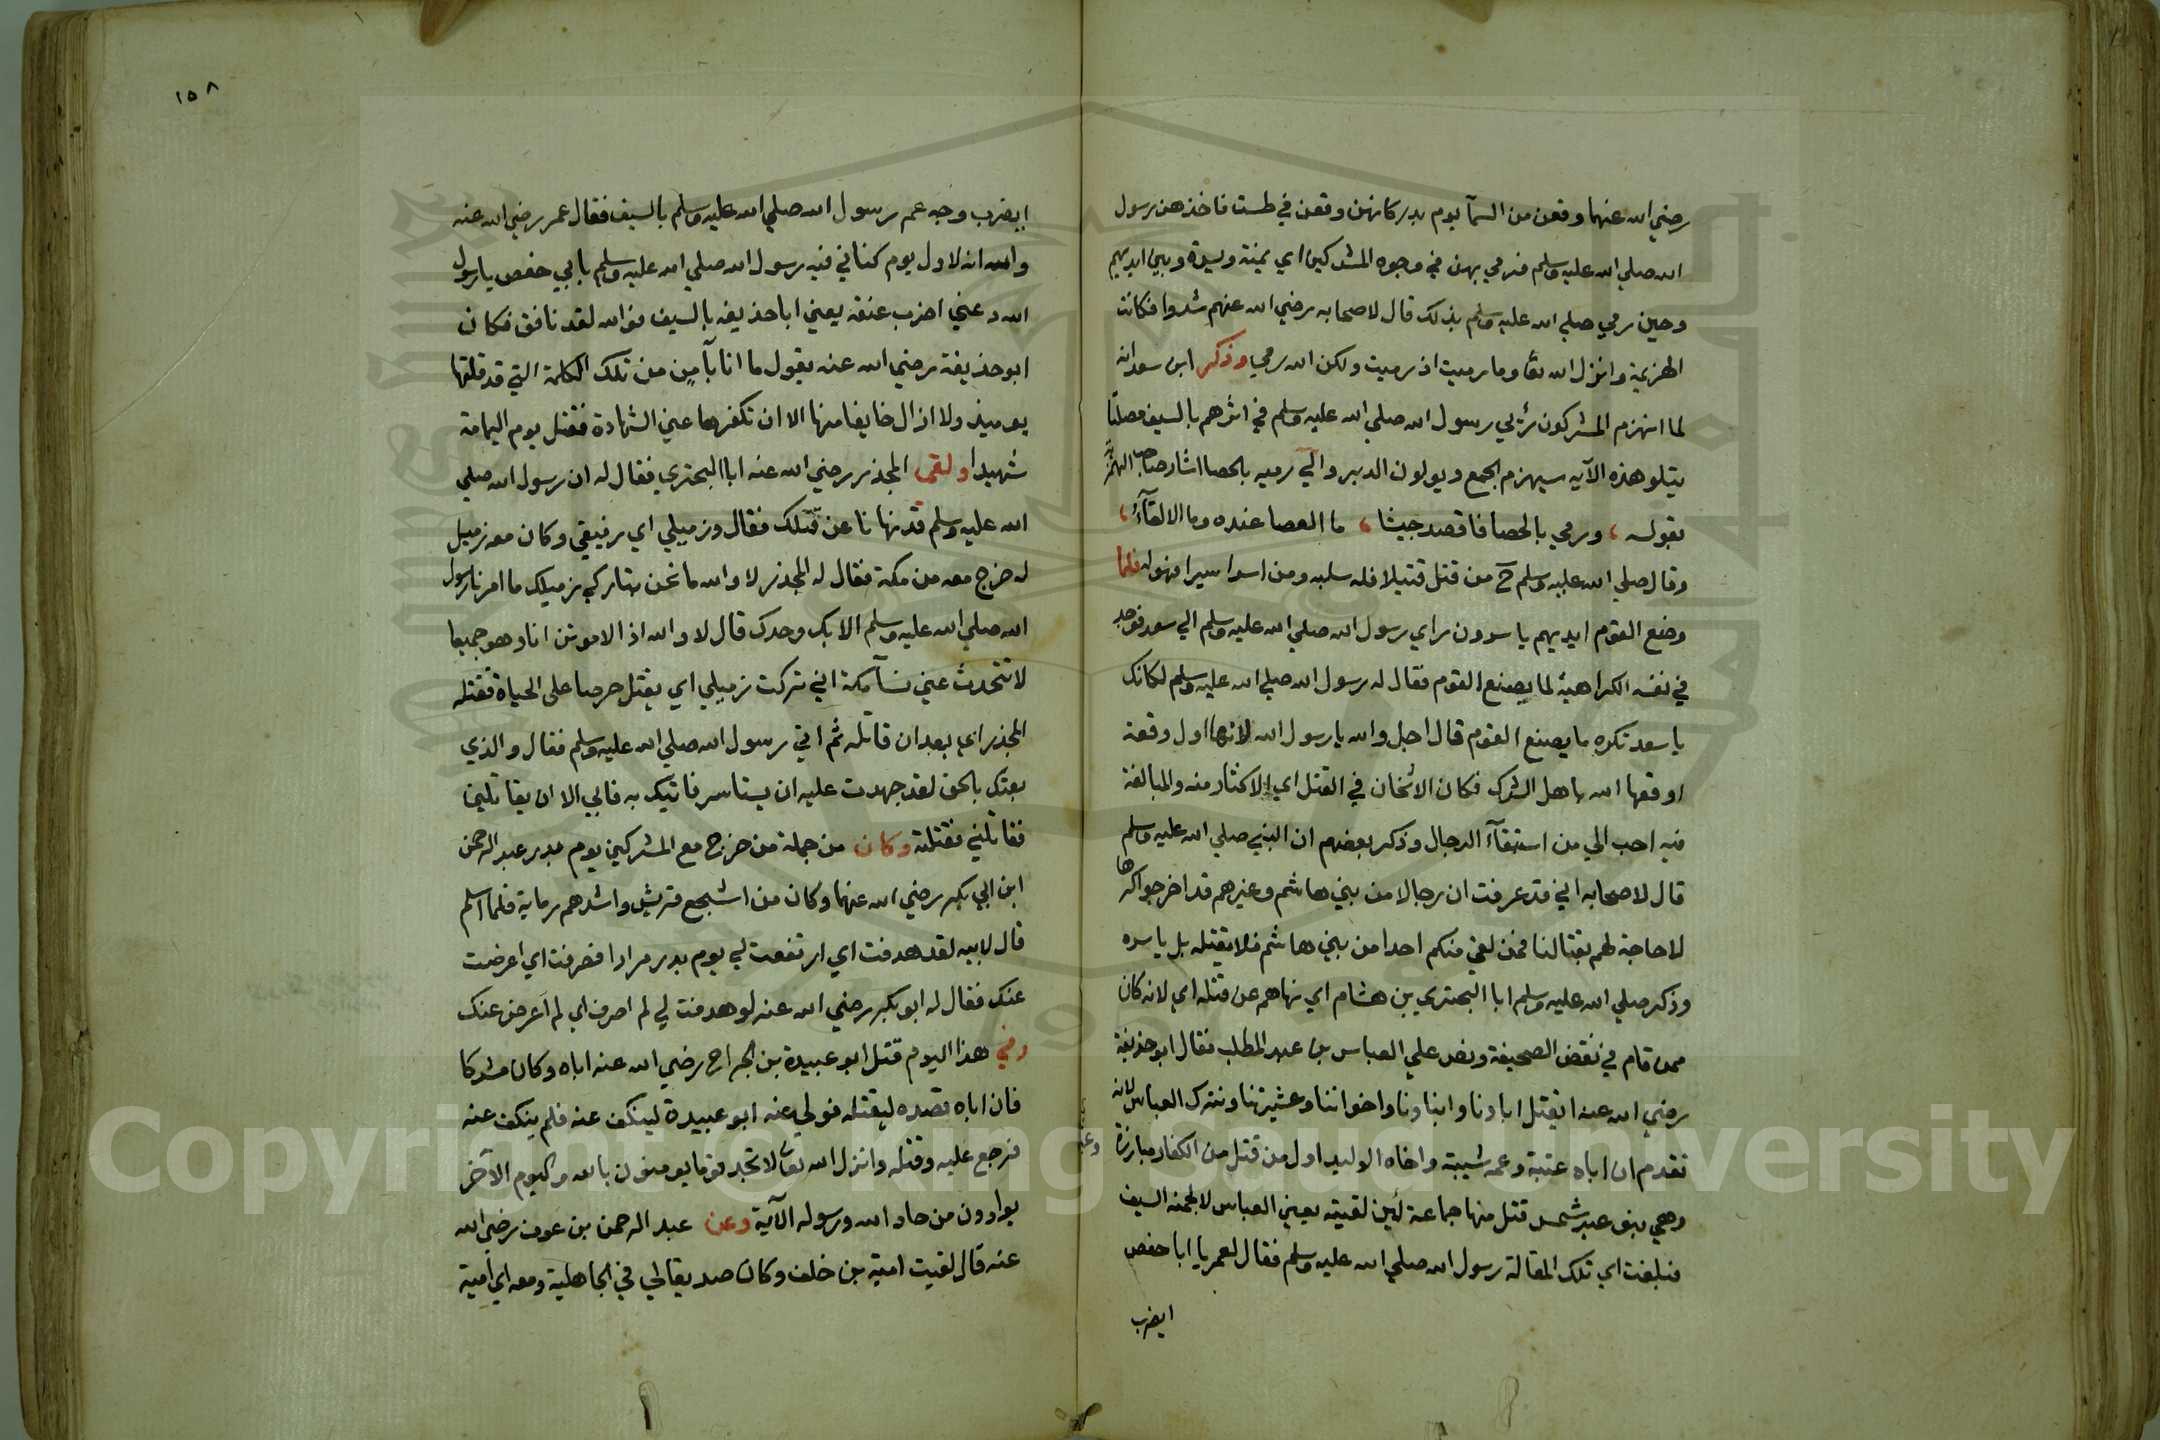 رضي الله عنهما وقعن من السمآ يوم بدر كانهن وقعن في طست فاخذهن رسول
الله صلي الله عليه وسلم فرمي بهن في وجوه المشركين اي يمنة ويسرة وبين ايديهم
وحين رمي صلي الله عليه وسلم بذلك قال لاصحابه رضي الله عنهم شدوا فكانت
الهزيمة وانزل الله تعا وما رميت اذ رميت ولكن الله رمي وذكر ابن سعد انه
لما انهزم المشركون رئي رسول الله صلي الله عليه وسلم في اثرهم بالسيف مصلتا
يتلو هذه الآيه سيهزم الجمع ويولون الدبر والي رميه بالحصا اشار صاحب الهمزية
بقوله ، ورمي بالحصا فاقصد جيشا ، ما العصا عنده وما الالقآء ،
وقال صلي الله عليه وسلم ح من قتل قتيلا فله سلبه ومن اسر اسيرا فهو له فلما
وضع القوم ايديهم ياسرون راي رسول الله صلي الله عليه وسلم الي سعد فوجد
في نفسه الكراهية لما يصنع القوم فقال له رسول الله صلي الله عليه وسلم لكانك
يا سعد تكره ما يصنع القوم قال اجل والله يا رسول الله لانها اول وقعة
اوقعها الله باهل الشرك فكان الاثخان في القتل اي الاكثار منه والمبالغة
فيه احب الي من استبقآء الرجال وذكر بعضهم ان النبي صلي الله عليه وسلم
قال لاصحابه اني قد عرفت ان رجالا من بني هاشم وغيرهم قد اخرجوا كرها
لا حاجة لهم بقتالنا فمن لقي منكم احدا من بني هاشم فلا يقتله بل ياسره
وذكر صلي الله عليه وسلم ابا البحتري بن هشام اي نهاهم عن قتله اي لانه كان
ممن قام في نقض الصحيفة ونص علي العباس بن عبد المطلب فقال ابو حذيفة
رضي الله عنه انقتل اباونا وابناونا واخواننا وعشيرتنا ونترك العباس لانه
تقدم ان اباه عتبة وعمه شيبة واخاه الوليد اول من قتل من الكفار مبارزة
وهي بنو عبد شمس قتل منها جماعة لئن لقيته يعني العباس لالجمنه السيف
فبلغت اي تلك المقالة رسول الله صلي الله عليه وسلم فقال لعمر يا ابا حفص
ايضرب
١٥٨
ايضرب وجه عم رسول الله صلي الله عليه وسلم بالسيف فقال عمر رضي الله عنه
والله انه لاول يوم كناني فيه رسول الله صلي الله عليه وسلم بابي حفص يا رسول
الله دعني اضرب عنقه يعني ابا حذيفه بالسيف فوالله لقد نافق فكان
ابو حذيفة رضي الله عنه يقول ما انا بآمن من تلك الكلمة التي قد قلتها
يوميذ ولا ازال خايفا منها الا ان تكفرها عني الشهادة فقتل يوم اليمامة
شهيدا ولقي المجذر رضي الله عنه ابا البحتري فقال له ان رسول الله صلي
الله عليه وسلم قد نهانا عن قتلك فقال وزميلي اي رفيقي وكان معه زميل
له خرج معه من مكة فقال له المجذر لا والله ما نحن بتاركي زميلك ما امرنا رسول
الله صلي الله عليه وسلم الا بك وحدك قال لا والله اذا لاموتن انا وهو جميعا
لا تتحدث عني نسآ مكة اني تركت زميلي اي يقتل حرصا علي الحياة فقتله
المجذر اي بعد ان قاتله ثم اتي رسول الله صلي الله عليه وسلم فقال والذي
بعثك بالحق لقد جهدت عليه ان يستاسر فاتيك به فابي الا ان يقاتلني
فقاتلني فقتلته وكان من جملة من خرج مع المشركين يوم بدر عبد الرحمن
ابن ابي بكر رضي الله عنهما وكان من اشجع قريش واشدهم رماية فلما اسلم
قال لابيه لقد هدفت اي ارتفعت لي يوم بدر مرارا فصرفت اي اعرضت
عنك فقال له ابو بكر رضي الله عنه لو هدفت لي لم اصرف اي لم اعرض عنك
وفي هذا اليوم قتل ابو عبيدة بن الجراح رضي الله عنه اباه وكان مشركا
فان اباه قصده ليقتله فولي عنه ابو عبيدة لينكف عنه فلم ينكف عنه
فرجع عليه وقتله وانزل الله تعا لا تجد قوما يومنون بالله واليوم الآخر
يوادون من حاد الله ورسوله الآية وعن عبد الرحمن بن عوف رضي الله
عنه قال لقيت امية بن خلف وكان صديقا لي في الجاهلية ومعه اي امية
Copyright © King Saud University